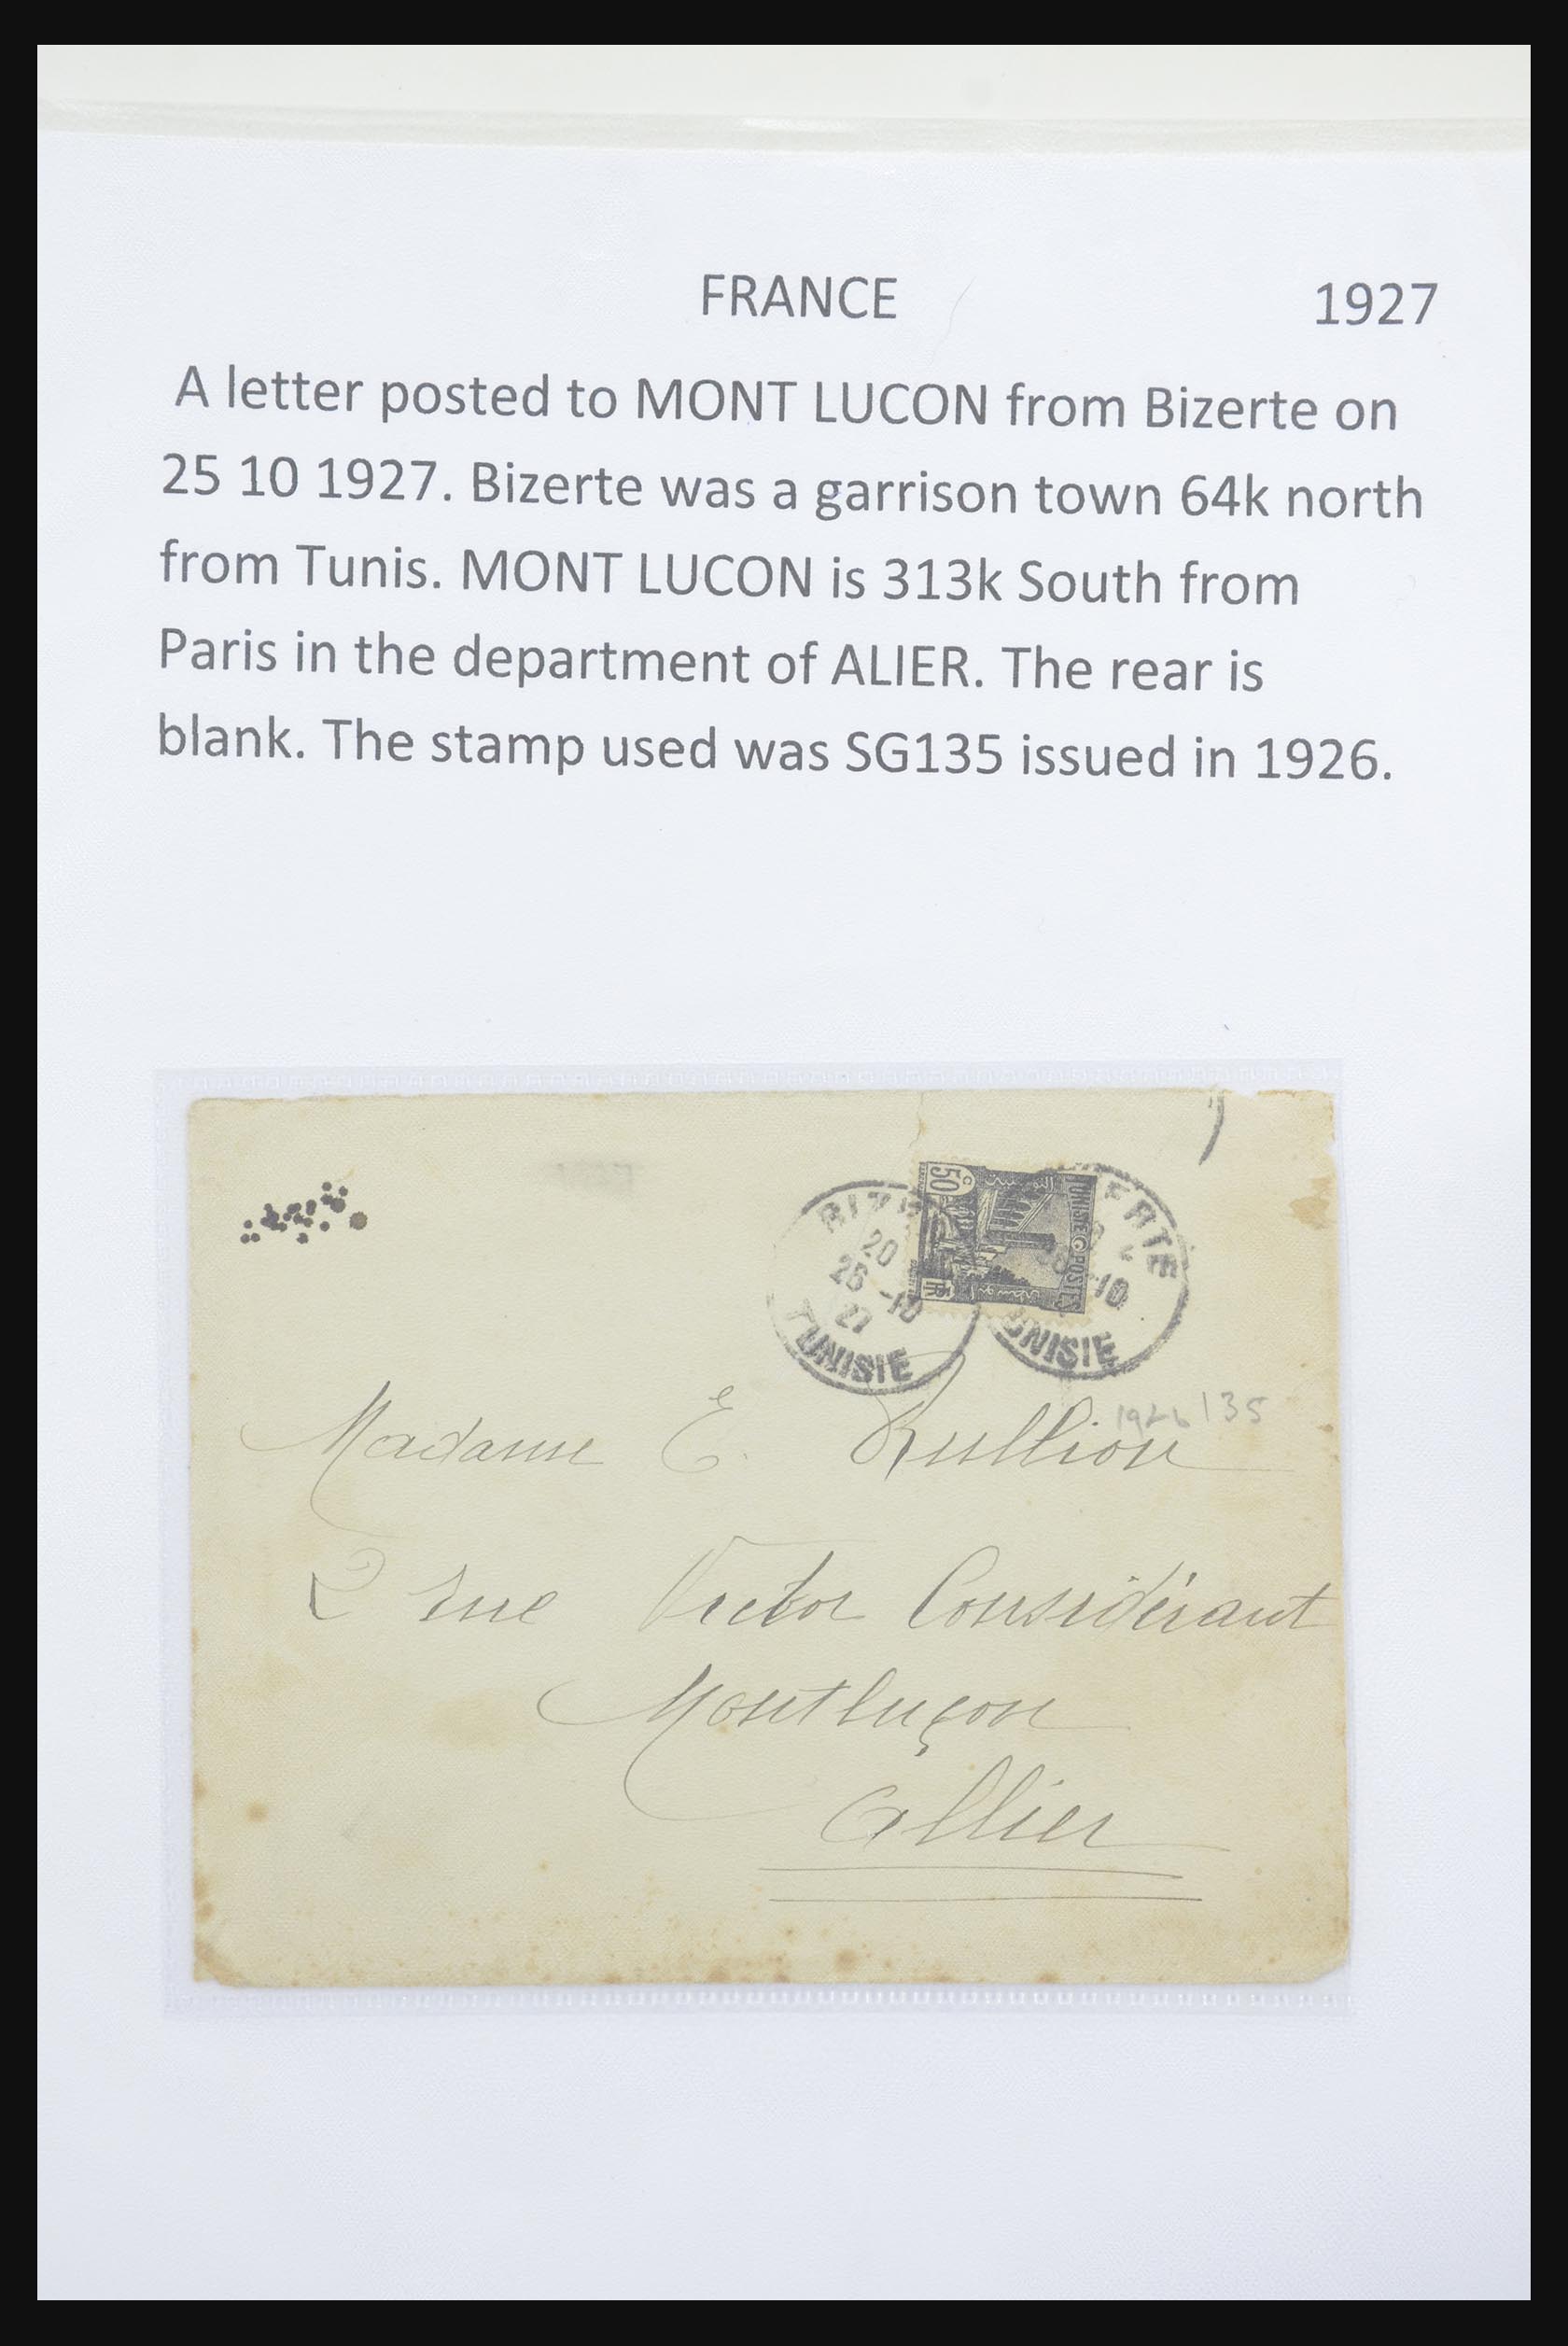 FRANCE 1927
A letter posted to MONT LUCON from Bizerte on
25 10 1927. Bizerte was a garrison town 64k north
from Tunis. MONT LUCON is 313k South from
Paris in the department of ALIER. The rear is
blank. The stamp used was SG135 issued in 1926.
50c
TUNISIE POSTES
RF
20
26 -10
27
TUNISIE
-10
1926 135
Madame E. Rullion
2 rue Victor Considérant
Montluçon
Allier